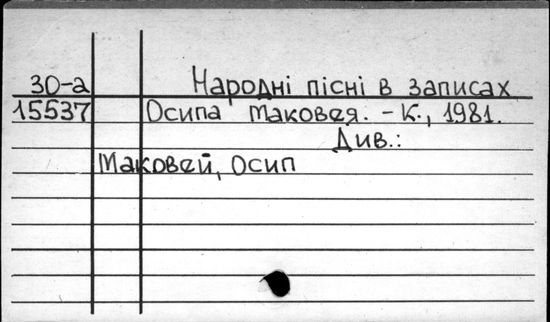 30-а Народні пісні в записах
15537 Осипа Маковея. - К., 1981.
Див.:
Маковей, Осип